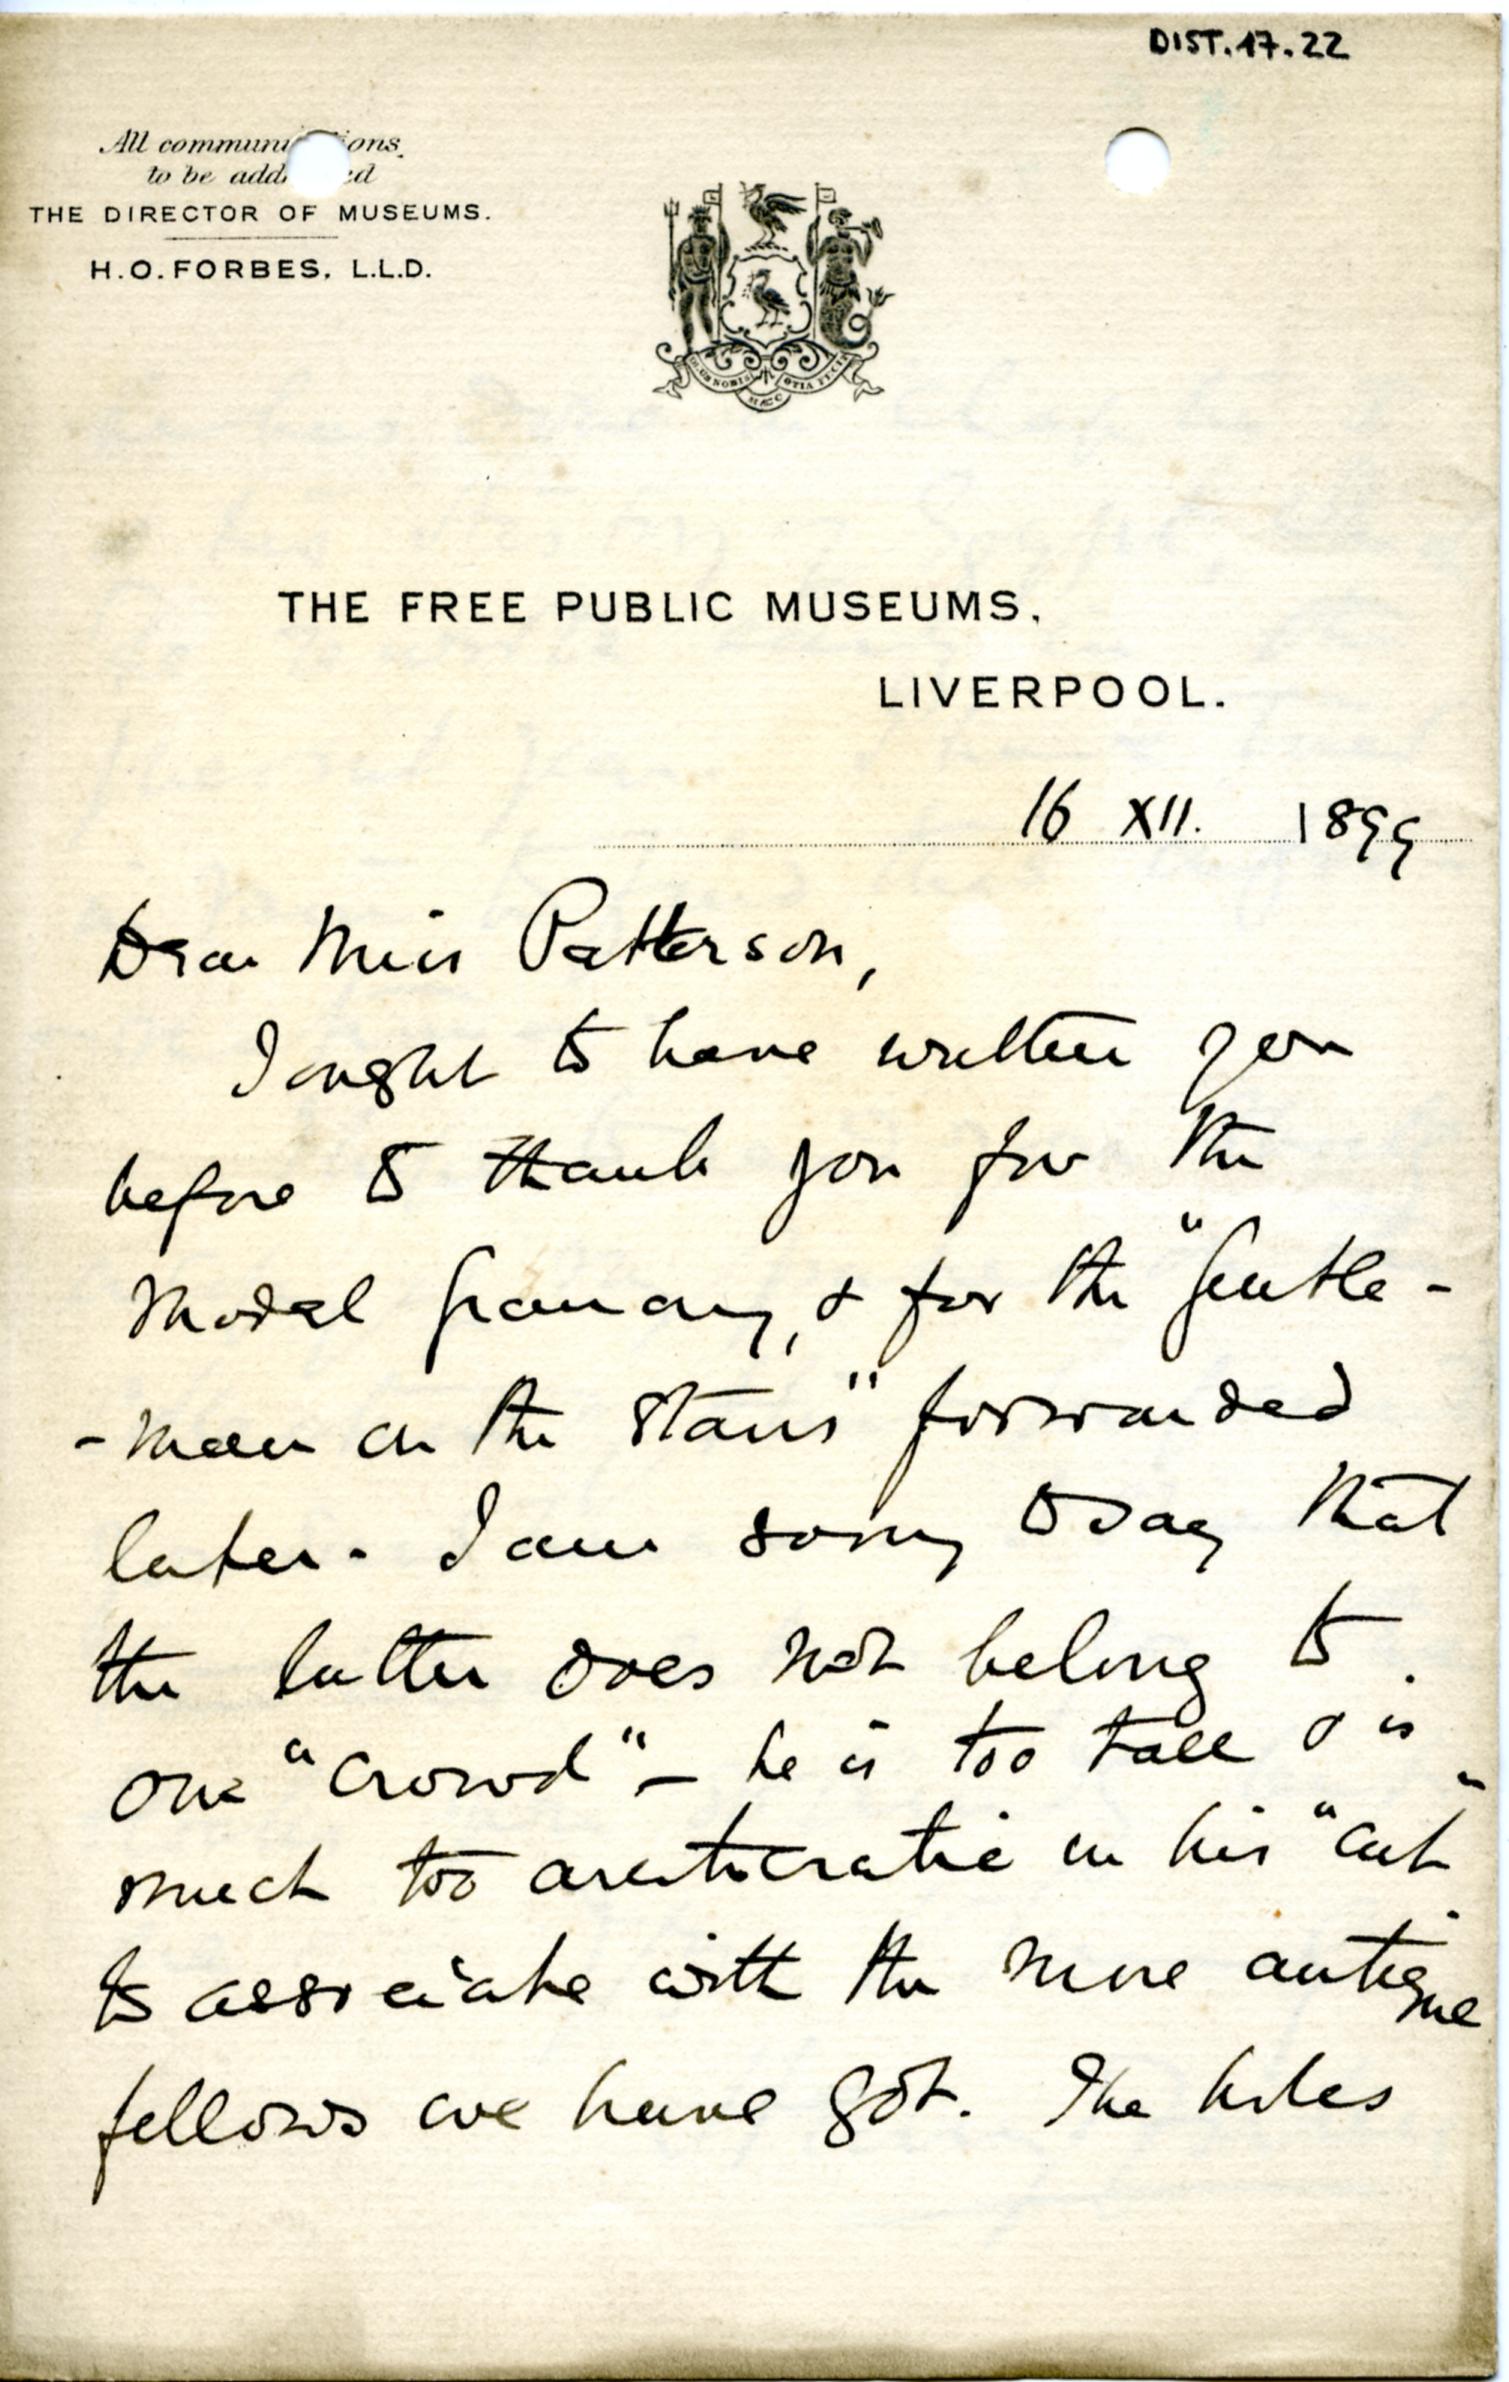 DIST.17.22
All communi ions
to be add ed
THE DIRECTOR OF MUSEUMS.
H.O. FORBES. L.L.D.
DEUS NOBIS HÆC OTIA FECIT
THE FREE PUBLIC MUSEUMS,
LIVERPOOL.
16 XII. 1899
Dear Miss Patterson,
I ought to have written you
before to thank you for the
Model Granary, & for the "Gentle-
-man on the stairs" forwarded
later. I am sorry to say that
the latter does not belong to
our "crowd" – he is too tall & is
much too aristocratic in his "cut"
to associate with the more antique
fellows we have got. The holes